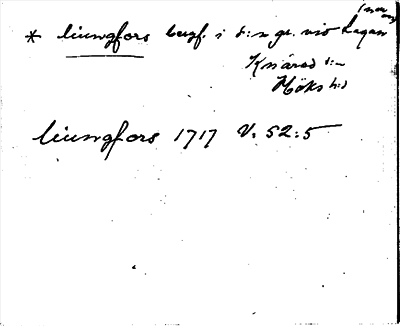 * Liungfors bergf. i d:n gr. vid Lagan
Knäred s:n
Höks h:d
Liungfors 1717 V. 52:5